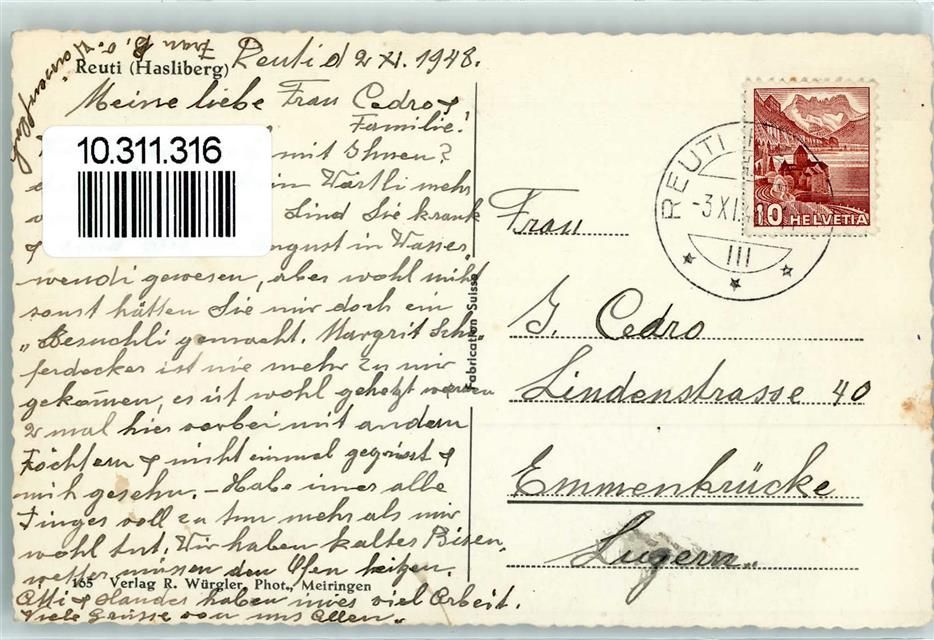 Reuti d 2 XI. 1948.
Reuti (Hasliberg)
Meine liebe Frau Cedro &
Familie!
10.311.316
mit Ihnen?
in Wärtli mehr
Sind Sie krank
August in Wasser
wendi gewesen, aber wohl niht
sonst hätten Sie mir doch ein
"Besuchli gemacht. Margrit Sch
ferdecker ist nie mehr zu mir
gekom̄en, es ist wohl gehetzt worden
2 mal hier vorbei mit andern
Töchtern & niht einmal gegrüsst &
mih gesehn. - Habe im̄er alle
Finger voll zu tun mehr als mir
wohl tut. Wir haben kaltes Bisen,
wetter müssen den Ofen heizen.
165 Verlag R. Würgler, Phot., Meiringen
haben viel Arbeit.
Viele Grüsse von uns Allen"
Fabrication Suisse
REUTI
-3 XI.
III
10 HELVETIA
Frau
G. Cedro
Lindenstrasse 40
Emmenbrücke
Luzern.